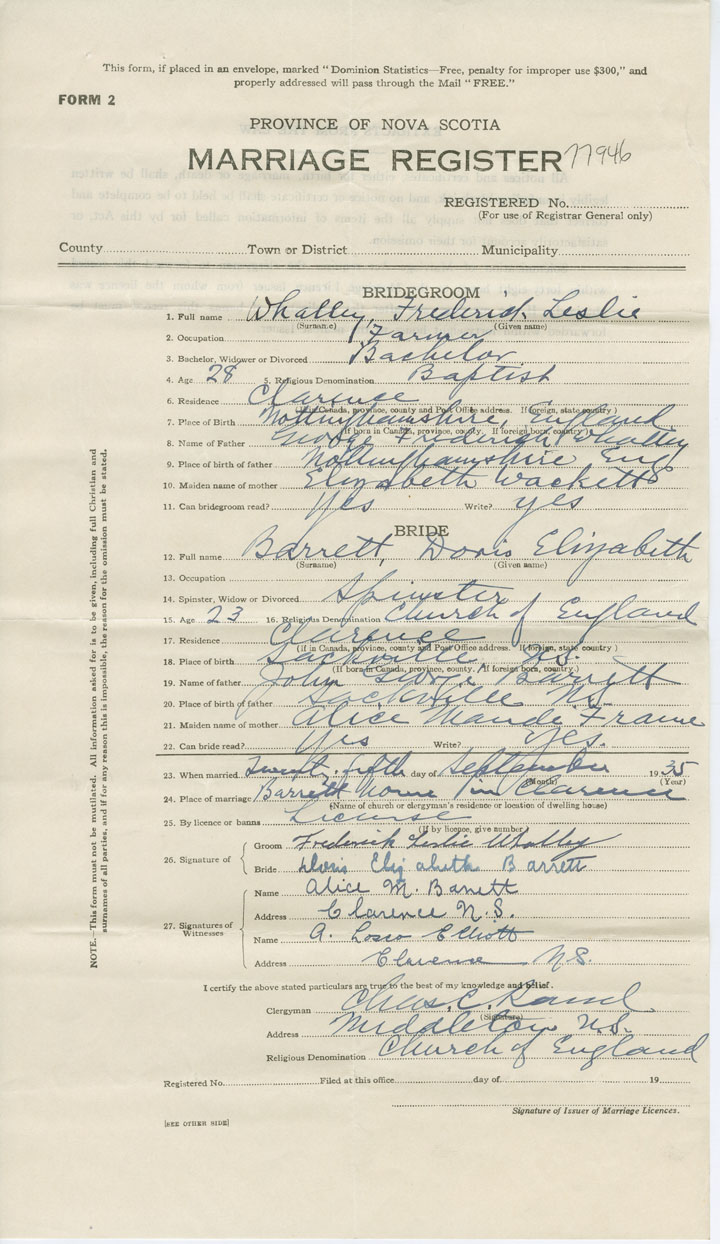 This form, if placed in an envelope, marked "Dominion Statistics—Free, penalty for improper use $300," and
properly addressed will pass through the Mail "FREE."
FORM 2
PROVINCE OF NOVA SCOTIA
MARRIAGE REGISTER 77946
REGISTERED No.
(For use of Registrar General only)
County Town or District Municipality
BRIDEGROOM
1. Full name Whalley, Frederick Leslie
(Surname) (Given name)
2. Occupation Farmer
3. Bachelor, Widower or Divorced Bachelor
4. Age 28 5. Religious Denomination Baptist
6. Residence Clarence
(If in Canada, province, county and Post Office address. If foreign, state country)
7. Place of Birth Nottinghamshire England
(If born in Canada, province, county. If foreign born, country)
8. Name of Father George Frederick Whalley
9. Place of birth of father Nottinghamshire Eng
10. Maiden name of mother Elizabeth Wackett
11. Can bridegroom read? Yes Write? yes
BRIDE
12. Full name Barrett, Doris Elizabeth
(Surname) (Given name)
13. Occupation
14. Spinster, Widow or Divorced Spinster
15. Age 23 16. Religious Denomination Church of England
17. Residence Clarence
(If in Canada, province, county and Post Office address. If foreign, state country)
18. Place of birth Sackville N.S.
(If born in Canada, province, county. If foreign born, country.)
19. Name of father John George Barrett
20. Place of birth of father Sackville N.S.
21. Maiden name of mother Alice Maude Frame
22. Can bride read? Yes Write? Yes.
23. When married Twenty fifth day of September 1935
(Month) (Year)
24. Place of marriage Barrett home in Clarence
(Name of church or clergyman's residence or location of dwelling house)
25. By licence or banns License
(If by licence, give number)
26. Signature of
Groom Frederick Leslie Whalley
Bride Doris Elizabeth Barrett
27. Signatures of Witnesses
Name Alice M. Barrett
Address Clarence N.S.
Name A. Elliott
Address Clarence N.S.
I certify the above stated particulars are true to the best of my knowledge and belief.
Clergyman Chas. C. Rand
(Signature)
Address Middleton N.S.
Religious Denomination Church of England
Registered No. Filed at this office day of 19
Signature of Issuer of Marriage Licences.
[SEE OTHER SIDE]
NOTE.—This form must not be mutilated. All information asked for is to be given, including full Christian and
surnames of all parties, and if for any reason this is impossible, the reason for the omission must be stated.